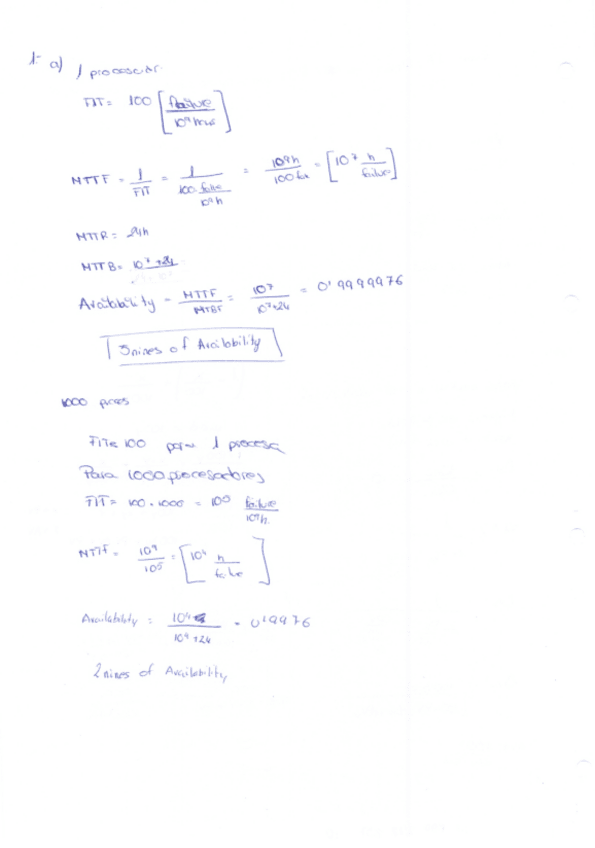 1- a) 1 procesador
FIT = 100 [failure / 10⁹ hours]
MTTF = 1/FIT = 1/(100 failure/10⁹h) = 10⁹h/100 fai = [10⁷ h/failure]
MTTR = 24h
MTTB = 10⁷+24
Availability = MTTF/MTBF = 10⁷/10⁷+24 = 0'9999976
5nines of Availability
1000 proces
FIT= 100 para 1 procesa
Para 1000 procesadores
FIT = 100 · 1000 = 10⁵ failure/10⁹h.
MTTF = 10⁹/10⁵ = [10⁴ h/failure]
Availability = 10⁴/10⁴+24 = 0'9976
2 nines of Availability